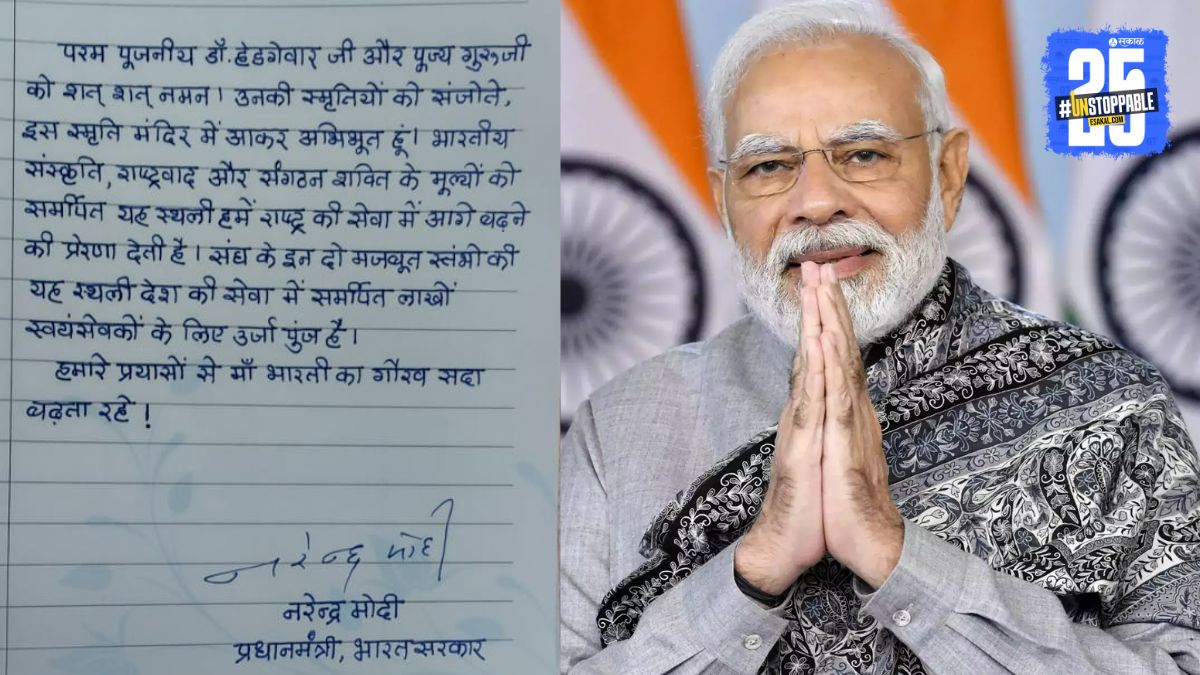 परम पूजनीय डॉ. हेडगेवार जी और पूज्य गुरूजी
को शत् शत् नमन। उनकी स्मृतियों को संजोते,
इस स्मृति मंदिर में आकर अभिभूत हूं। भारतीय
संस्कृति, राष्ट्रवाद और संगठन शक्ति के मूल्यों को
समर्पित यह स्थली हमें राष्ट्र की सेवा में आगे बढ़ने
की प्रेरणा देती है। संघ के इन दो मजबूत स्तंभो की
यह स्थली देश की सेवा में समर्पित लाखों
स्वयंसेवकों के लिए उर्जा पुंज है।
हमारे प्रयासों से माँ भारती का गौरव सदा
बढ़ता रहे!
नरेन्द्र मोदी
नरेन्द्र मोदी
प्रधानमंत्री, भारत सरकार
सकाळ
25
#UNSTOPPABLE
ESAKAL.COM